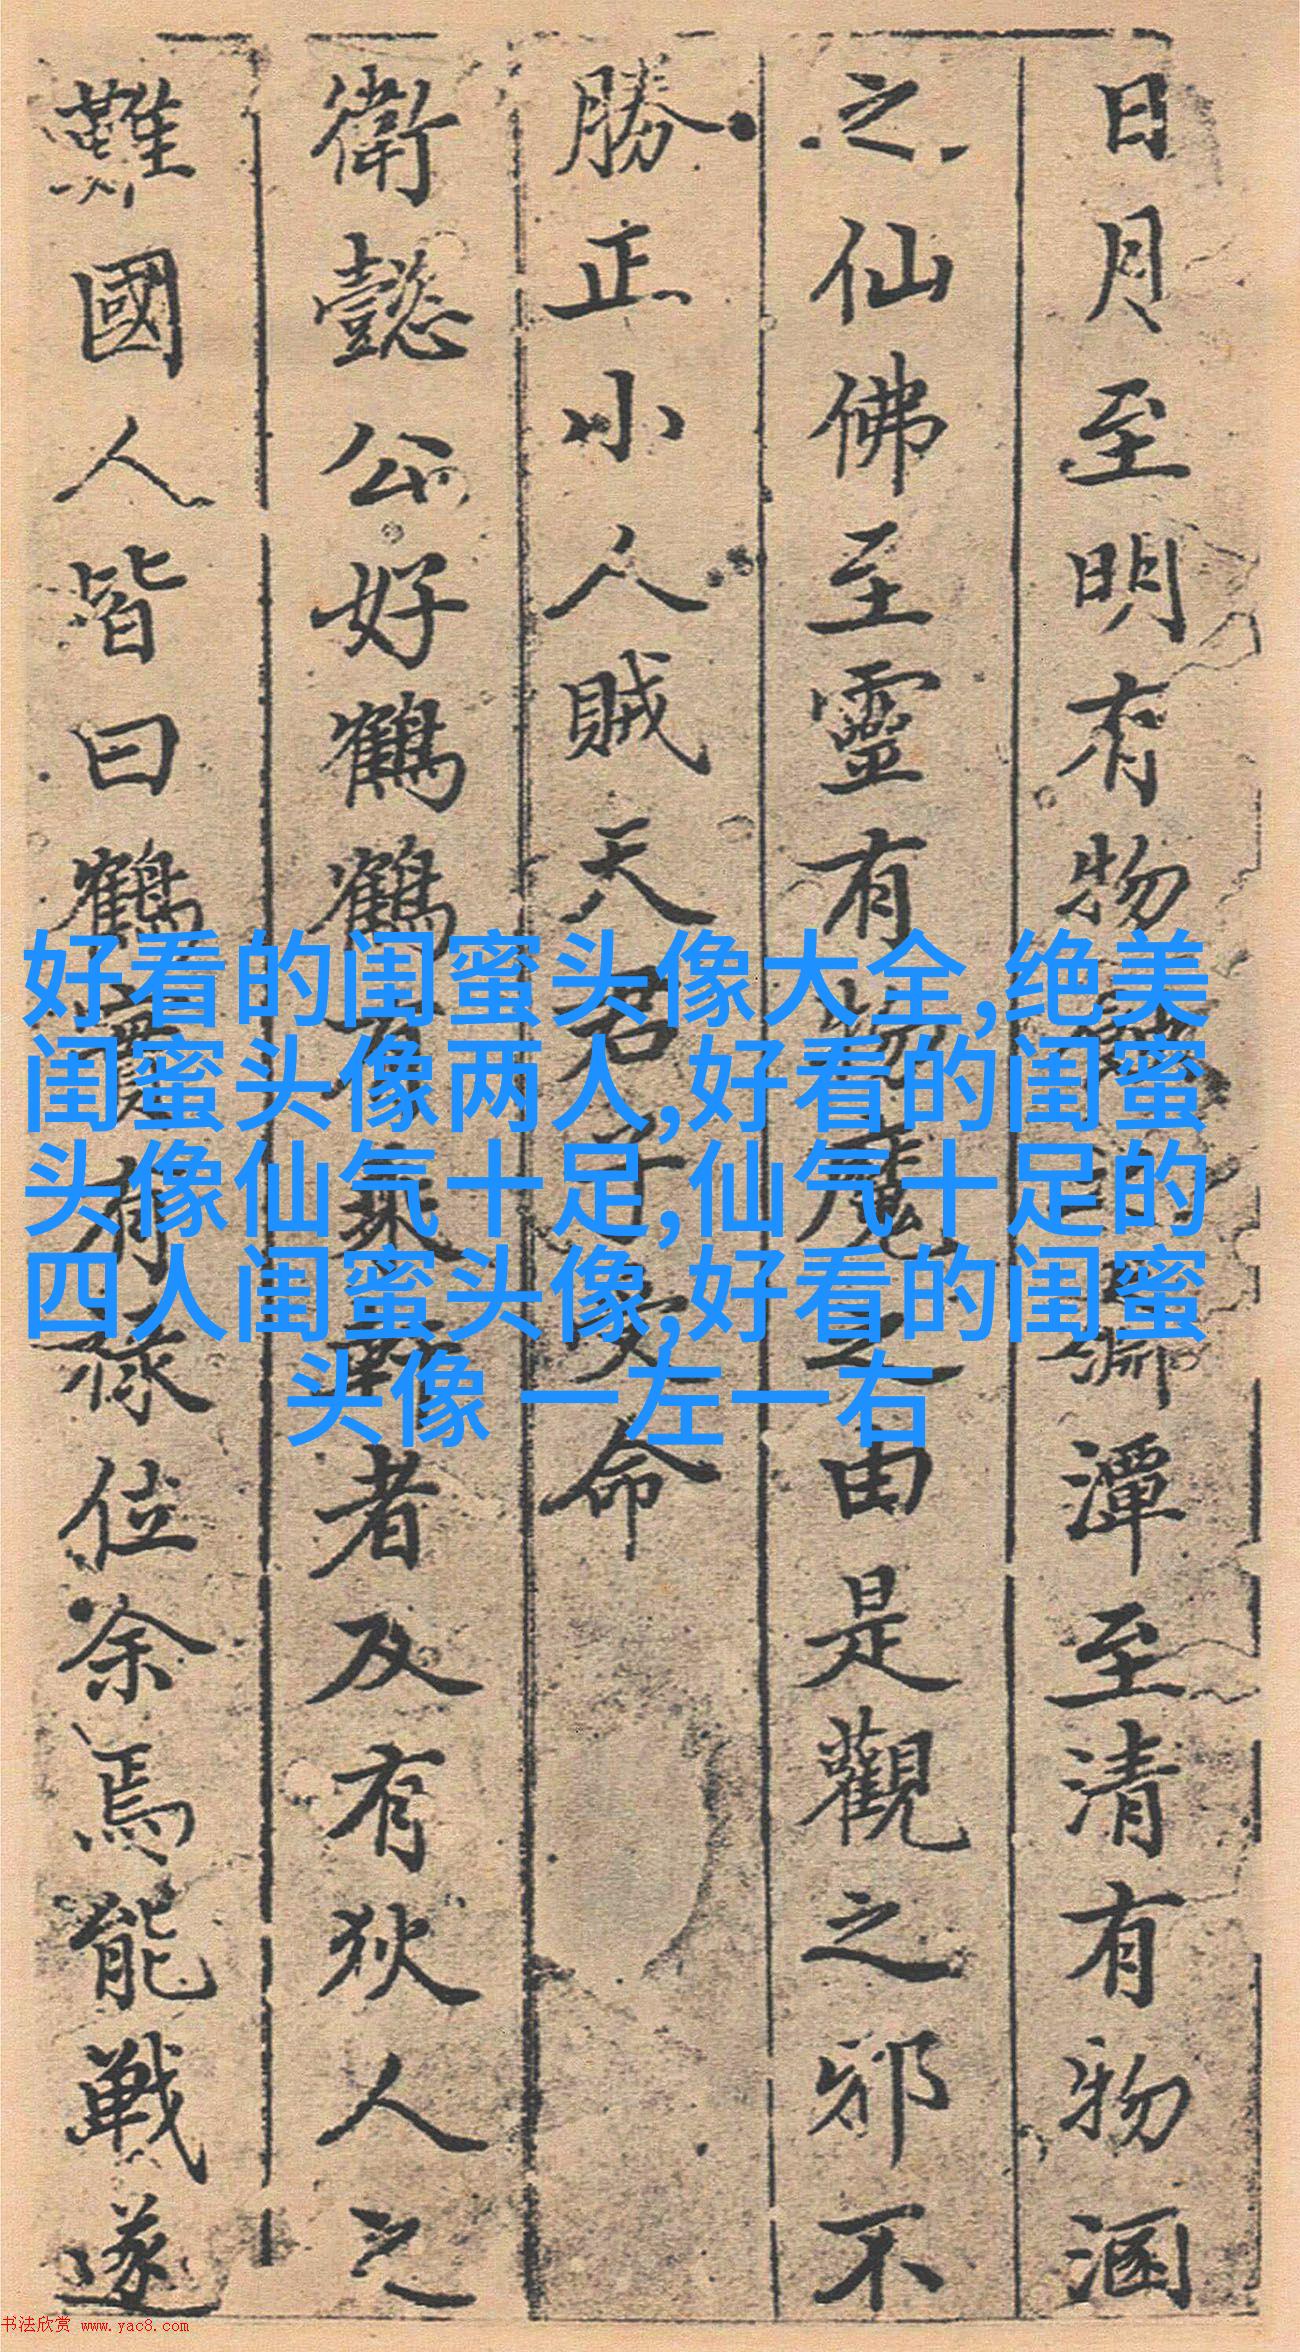 日月至明有物潭至清有物涵
之仙佛至靈有物魔之由是觀之邪不
勝正小人賊天君子安命
衛懿公好鶴鶴有乘軒者及有狄人之
難國人皆曰鶴實有祿位余焉能戰遂
好看的闺蜜头像大全,绝美
闺蜜头像两人,好看的闺蜜
头像仙气十足,仙气十足的
四人闺蜜头像,好看的闺蜜
头像 一左一右
书法欣赏 www.yac8.com